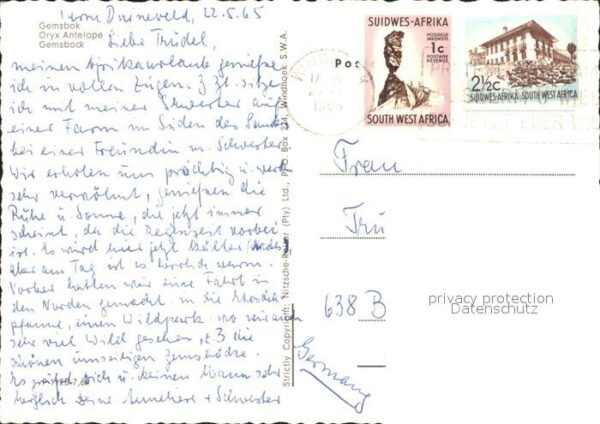 Gemsbok
Oryx Antelope
Gemsbock
from Duineveld, 22.5.65
Liebe Trudel,
meinen Afrikaurlaub genieße
ich in vollen Zügen. Z. Zt. sitze
ich mit meiner Schwester auf
einer Farm im Süden des Landes
bei einer Freundin m. Schwester
Wir erholen uns prächtig u. werden
sehr verwöhnt, genießen die
Ruhe u. Sonne, die jetzt immer
scheint, da die Regenzeit vorbei
ist. Es wird hier jetzt kälter (nachts)
aber am Tag ist es herrlich warm.
Vorher hatten wir eine Fahrt in
den Norden gemacht in die Etoscha
pfanne, einen Wildpark, wo wir auch
sehr viel Wild gesehen, z.B. die
schönen umseitigen Gemsböcke.
Es grüßt Dich u. Deinen Mann sehr
herzlich Deine Anneliese + Schwester
Strictly Copyright: Nitzsche-Reiter (Pty) Ltd., P.O. Box 224, Windhoek S.W.A.
SUIDWES-AFRIKA
POSGELD
INKOMSTE
1c
POSTAGE
REVENUE
SOUTH WEST AFRICA
2½c
SUIDWES-AFRIKA · SOUTH WEST AFRICA
Frau
Tru
638 B
Germany
privacy protection
Datenschutz